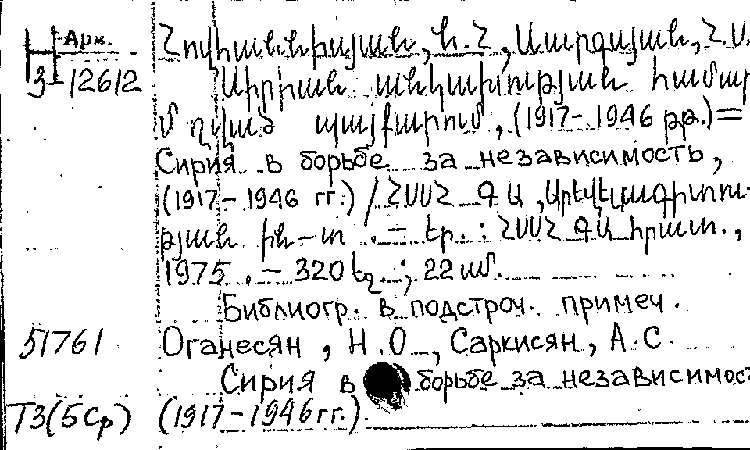 Арк. Հովհաննիսյան, Ն. Հ., Սարգսյան, Հ. Ս.
3-12612 Սիրիան անկախության համար
մղված պայքարում, (1917-1946 թթ.) =
Сирия в борьбе за независимость,
(1917-1946 гг.) / ՀՍՍՀ ԳԱ, Արևելագիտու-
թյան ին-տ. – Եր.: ՀՍՍՀ ԳԱ հրատ.,
1975. – 320 էջ.; 22 սմ.
Библиогр. в подстроч. примеч.
51761 Оганесян, Н.О., Саркисян, А.С.
Сирия в борьбе за независимост
Т3(5Ср) (1917-1946 гг.).